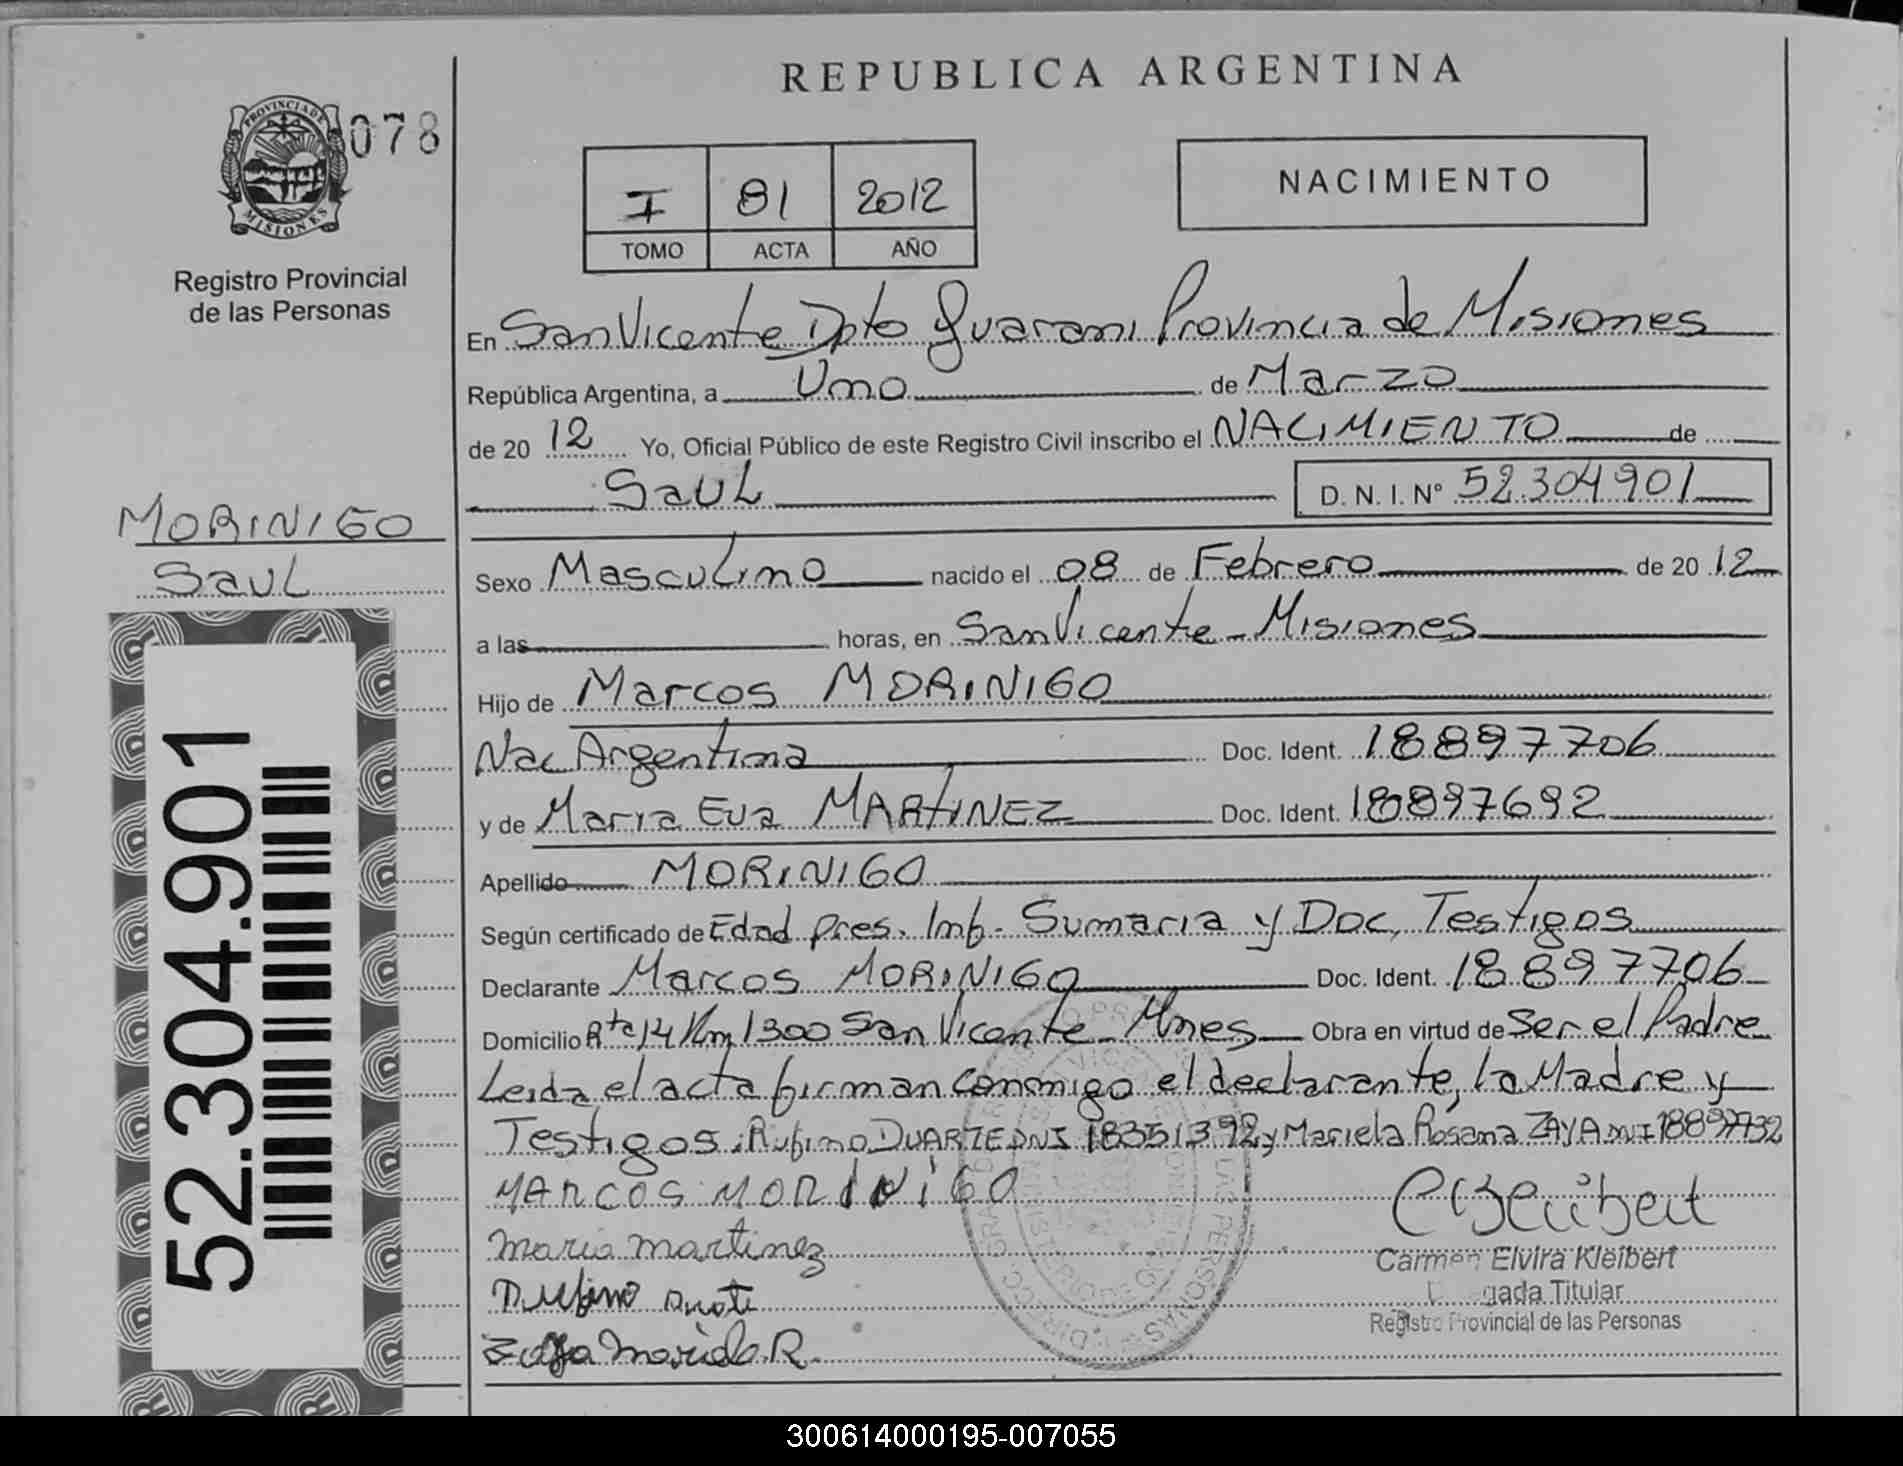 REPUBLICA ARGENTINA
PROVINCIA DE
MISIONES
078
Registro Provincial
de las Personas
I 81 2012
TOMO ACTA AÑO
NACIMIENTO
En San Vicente Dpto Guarani Provincia de Misiones
República Argentina, a Uno de Marzo
de 20 12 Yo, Oficial Público de este Registro Civil inscribo el NACIMIENTO de
Saul D. N. I. Nº 52.304.901
MORINIGO
Saul
Sexo Masculino nacido el 08 de Febrero de 20 12
a las horas, en San Vicente - Misiones
Hijo de Marcos MORINIGO
Nac Argentina Doc. Ident. 18897706
y de Maria Eva MARTINEZ Doc. Ident. 18897692
Apellido MORINIGO
Según certificado de Edad pres. Inf. Sumaria y Doc. Testigos
Declarante Marcos MORINIGO Doc. Ident. 18897706
Domicilio Rta 14 Km 1300 San Vicente - Mnes Obra en virtud de Ser el Padre
Leida el acta firman conmigo el declarante, la Madre y
Testigos: Rufino DUARTE DNI 18351392 y Mariela Rosana ZAYA DNI 18897732
MARCOS MORINIGO
maria martinez
Rufino
Zaya Mariela R.
Carmen Elvira Kleibert
Titular
Registro Provincial de las Personas
52.304.901
300614000195-007055